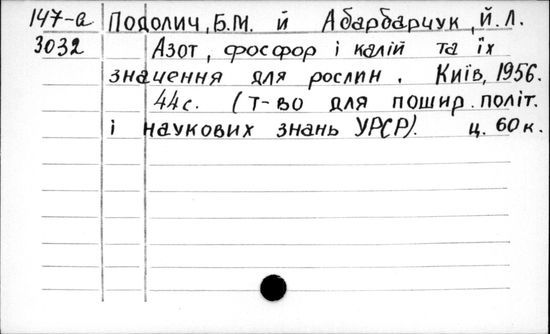 147-а Подолич, Б.М. й Абарбарчук, Й.Л.
3032 Азот, фосфор і калій та їх
значення для рослин. Київ, 1956.
44с. (Т-во для пошир. політ.
і наукових знань УРСР). ц. 60к.